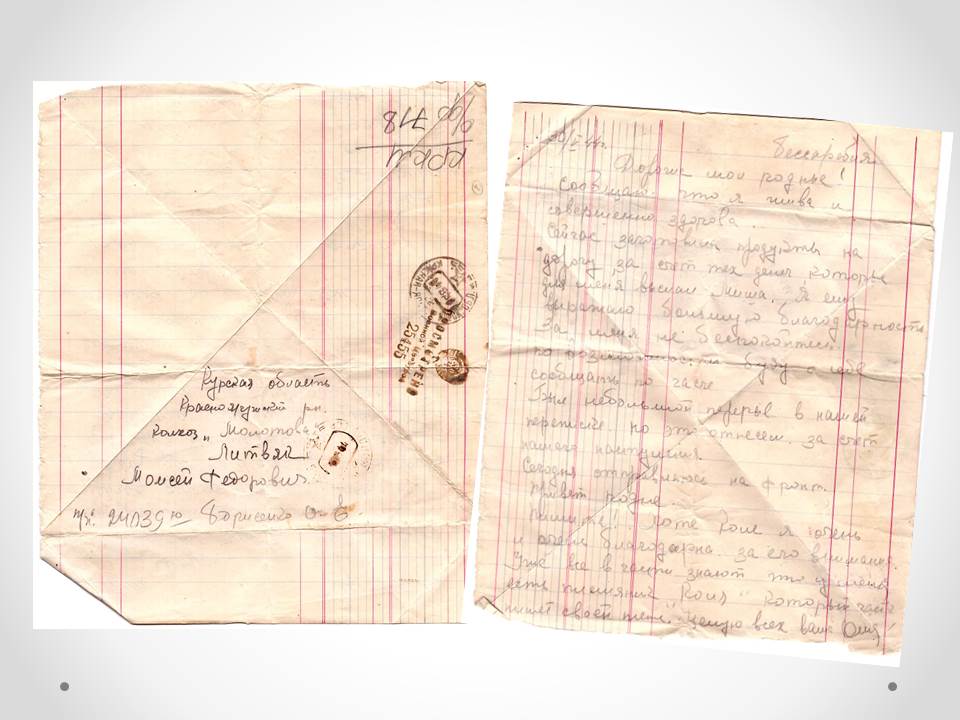 кркм
718
ПРОСМОТРЕНО
Военной Цензурой
25455
Курская область
Краснояружский рн.
колхоз "Молотова"
Литвяк
Моисей Федорович
п/п. 24039 ю Борисенко
30/ 44г. Бессарабия
Дорогие мои родные!
Сообщаю что я жива и
совершенно здорова.
Сейчас заготовим продукты на
дорогу за счет тех денег которые
для меня выслал Миша. Я ему
выражаю большую благодарность
За меня не беспокойтесь.
по возможности буду о себе
сообщать по чаще
Был небольшой перерыв в нашей
переписке но это отнесем за счет
нашего наступления
Сегодня отправляюсь на фронт.
Привет родне
пишите! Коле я очень
и очень благодарна за его внимание.
Уже все в части знают что у меня
есть племянник "Коля" который часто
пишет своей тете. Целую всех ваша Оля